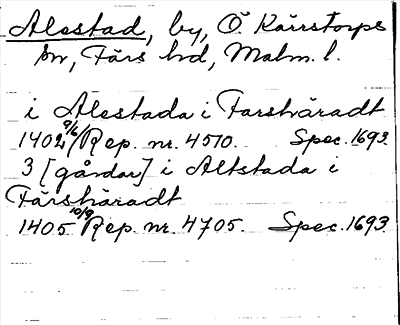 Alestad, by, Ö. Kärrstorps
sn, Färs hd, Malm. l.
i Alestada i Farshäradt
1402 9/6/Rep. nr. 4510. Spec. 1693.
3 [gårdar] i Altstada i
Färshäradt
1405 10/9 Rep. nr. 4705. Spec. 1693.